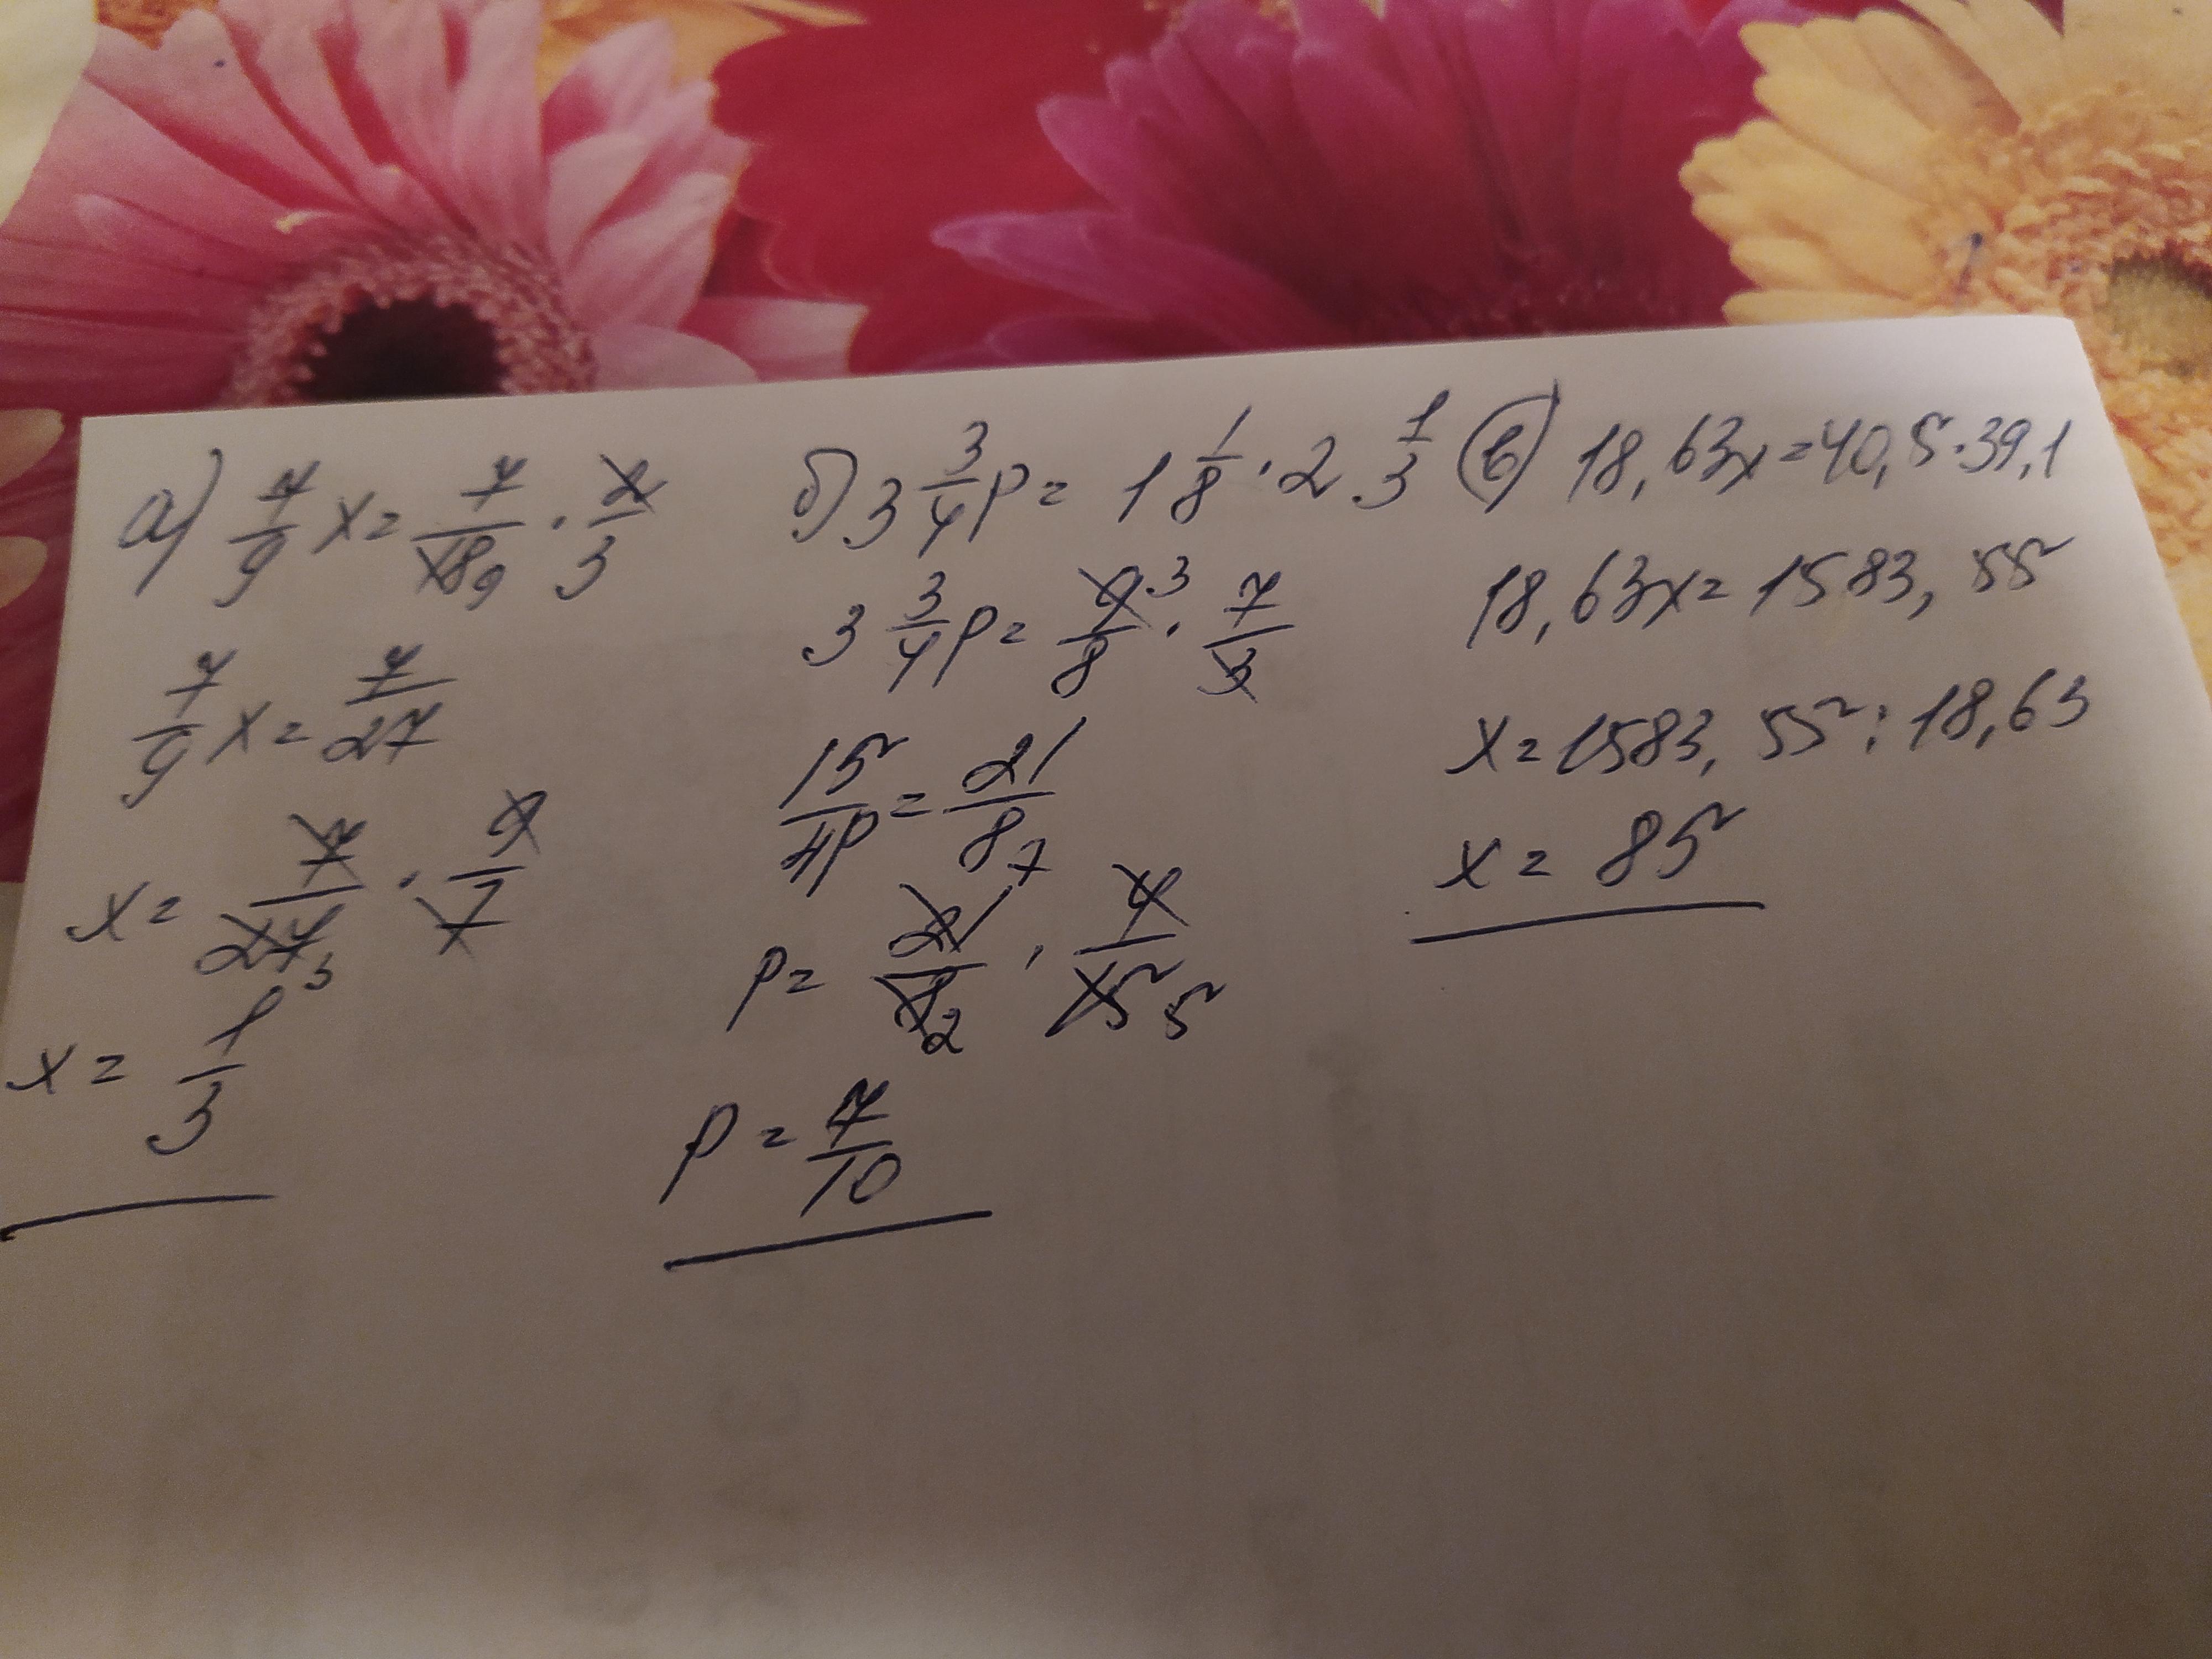 а) 7/9 x = 7/18 9 · 2/3
7/9 x = 7/27
x = 7/27 3 · 9/7
x = 1/3
б) 3 3/4 p = 1 1/8 · 2 1/3
3 3/4 p = 9 3/8 · 7/3
15/4p = 21/8
p = 21 7/8 2 · 4/15 5
p = 7/10
в) 18,63x = 40,5 · 39,1
18,63x = 1583,55
x = 1583,55 : 18,63
x = 85